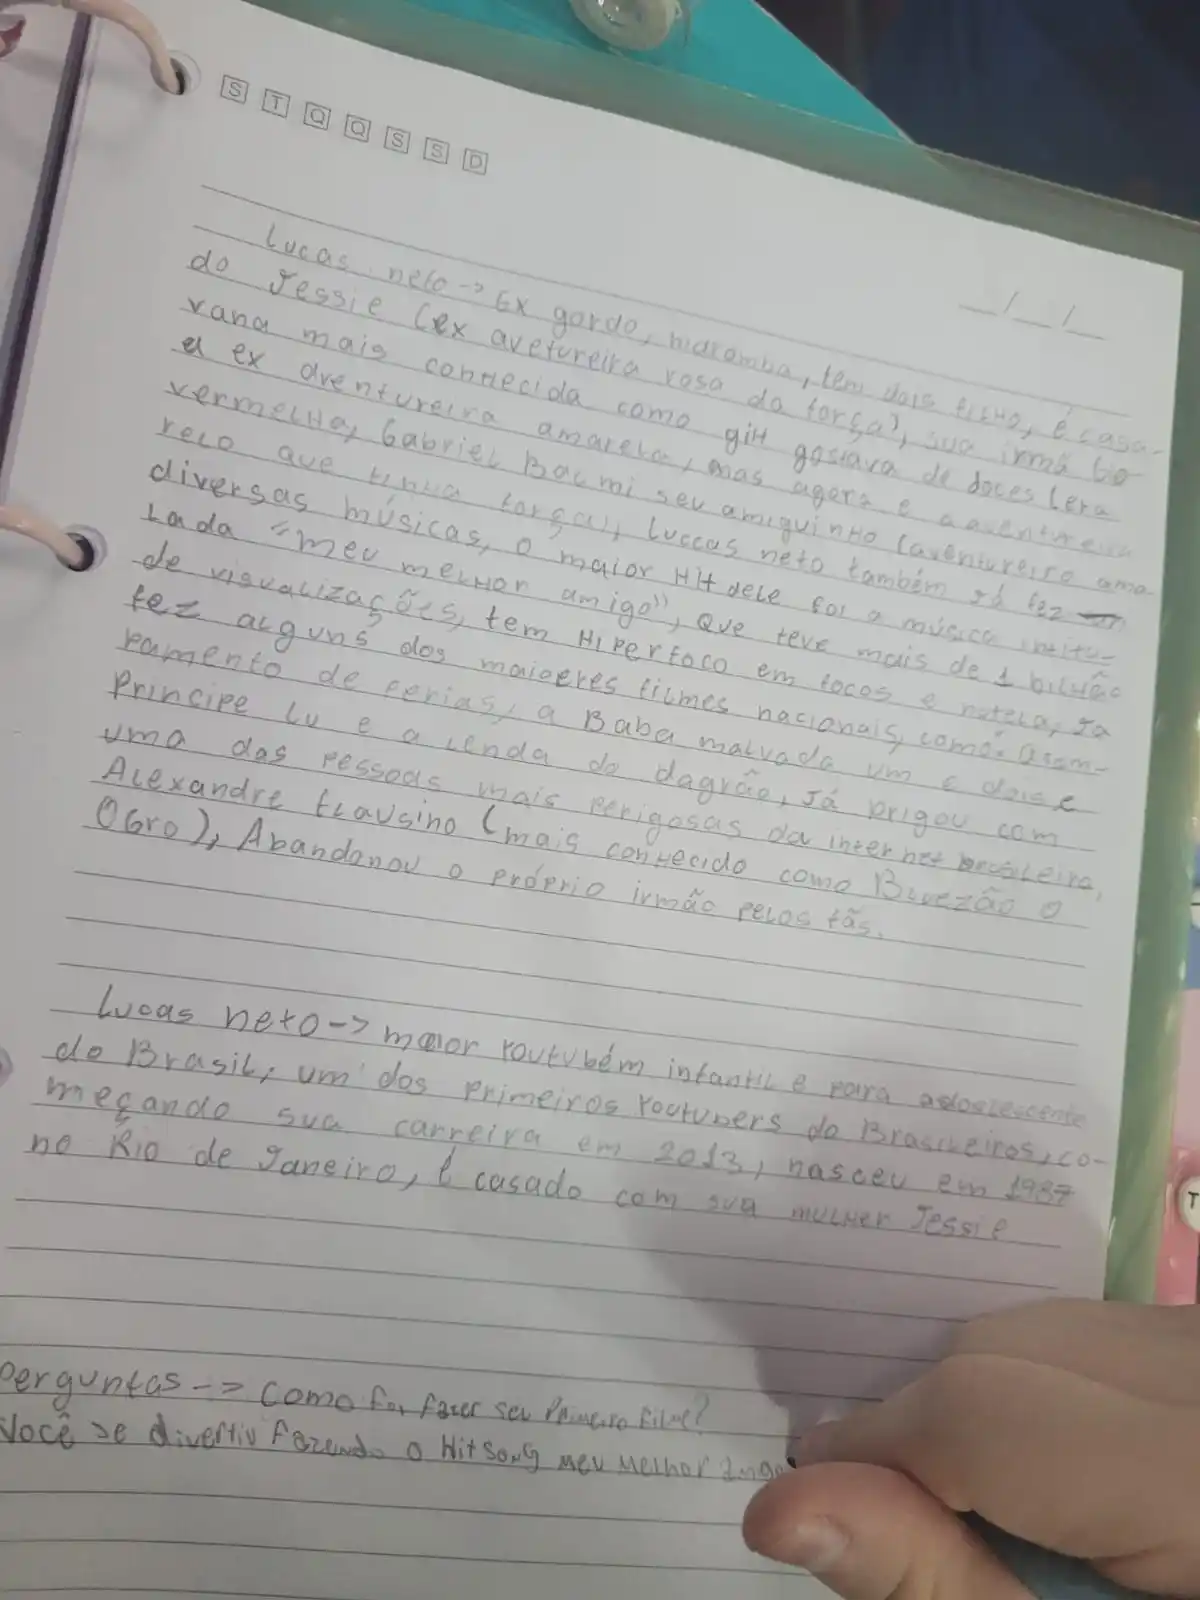 S T Q Q S S D
__/__/__
Lucas neto -> Ex gordo, maromba, tem dois filho, é casa-
do Jessie (ex avetureira rosa da força), sua irmã Gio
vana mais conhecida como giH gostava de doces (era
a ex aventureira amarela, mas agora é a aventureira
vermelha, Gabriel Bacmi seu amiguinho (aventureiro ama
relo que tinha força), Luccas neto também já fez
diversas músicas, o maior Hit dele foi a música intitu-
lada "meu melhor amigo", Que teve mais de 1 bilhão
de visualizações, tem Hiperfoco em focos e nutela, Ja
fez alguns dos maioeres filmes nacionais, como: acam-
pamento de ferias, a Baba malvada um e dois e
Principe lu e a lenda do dagrão, Já brigou com
uma das pessoas mais perigosas da internet brasileira,
Alexandre flausino (mais conhecido como Bluezão o
OGro), Abandonou o próprio irmão pelos fãs.
Lucas neto -> maior Youtubém infantil e para adolescente
do Brasil, um dos primeiros Youtubers do Brasileiros, co-
meçando sua carreira em 2013, nasceu em 1987
no Rio de Janeiro, é casado com sua mulher Jessie
perguntas -> Como foi fazer seu Primeiro filme?
Você se divertiu fazendo o Hit song Meu Melhor